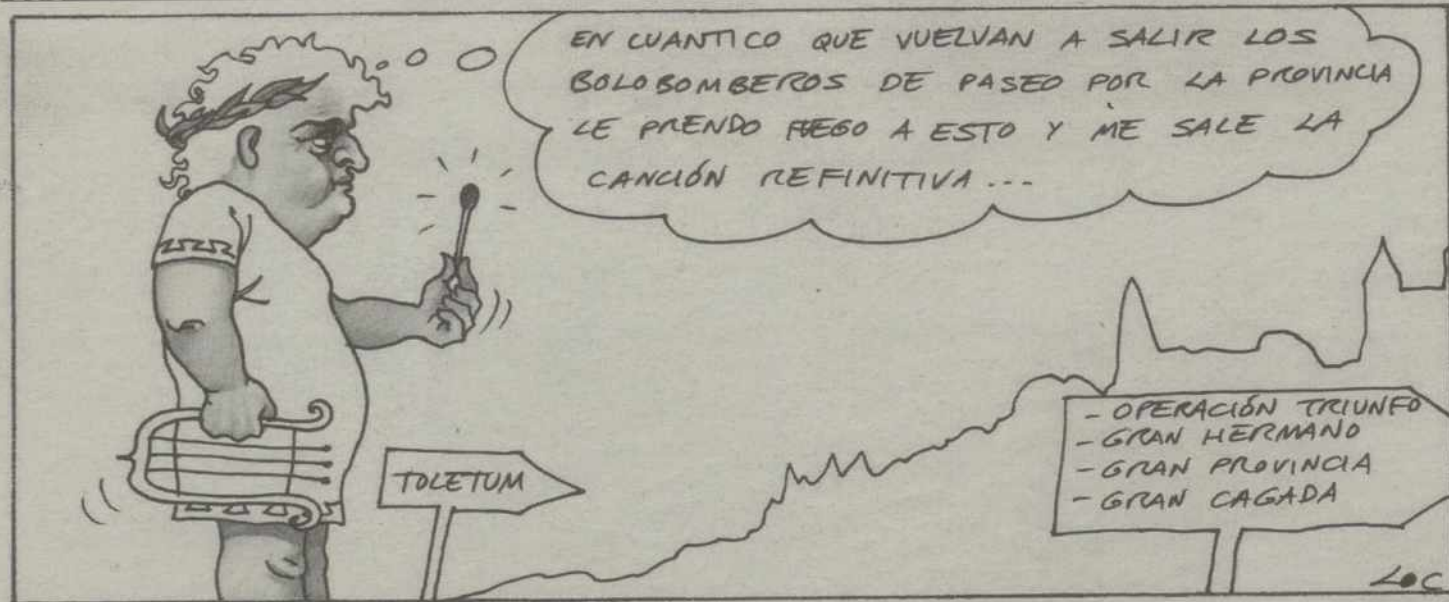 EN CUANTICO QUE VUELVAN A SALIR LOS
BOLOBOMBEROS DE PASEO POR LA PROVINCIA
LE PRENDO FUEGO A ESTO Y ME SALE LA
CANCIÓN REFINITIVA...
TOLETUM
- OPERACIÓN TRIUNFO
- GRAN HERMANO
- GRAN PROVINCIA
- GRAN CAGADA
LOC